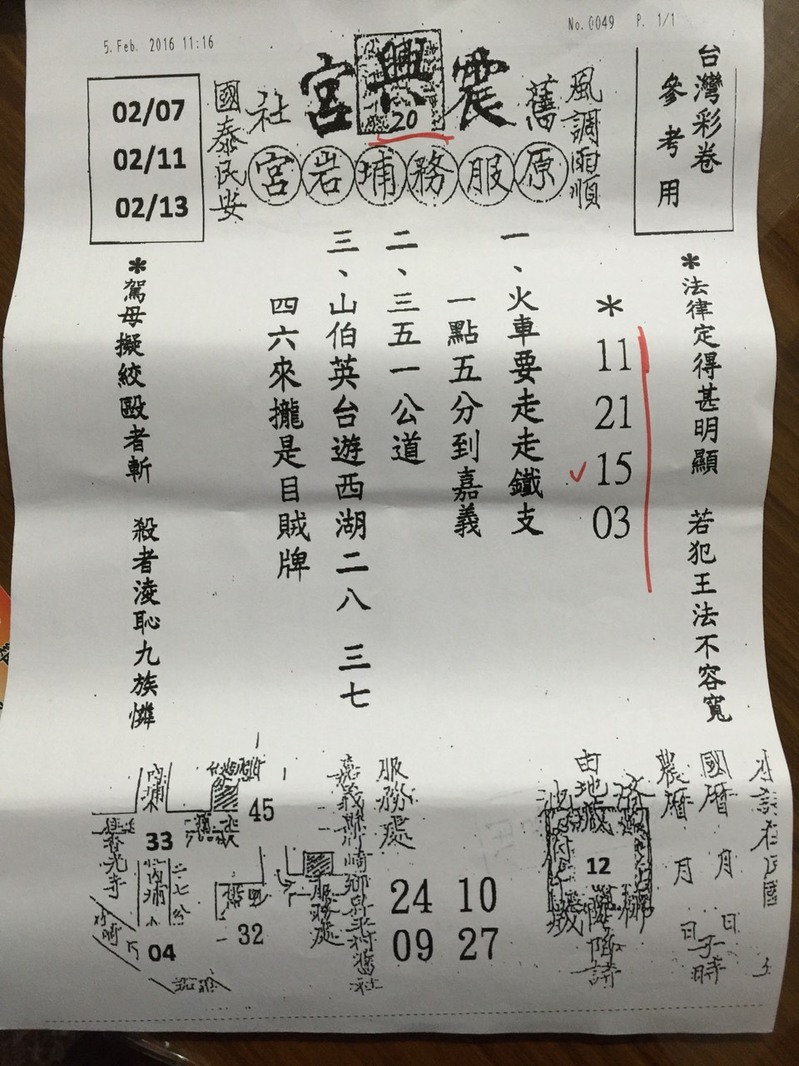 5. Feb. 2016 11:16
No. 0049 P. 1/1
台灣彩卷
參考用
風調雨順
舊
震興宮
20
社
國泰民安
原服務埔岩宮
02/07
02/11
02/13
*法律定得甚明顯 若犯王法不容寬
*
11
21
15
03
一、火車要走走鐵支
一點五分到嘉義
二、三五一公道
三、山伯英台遊西湖二八 三七
四六來攏是目賊牌
*駕母擬絞毆者斬 殺者淩恥九族憐
國曆 月 日子時
農曆 月 日
12
服務處
24 10
09 27
45
33
內埔
32
服務處
04